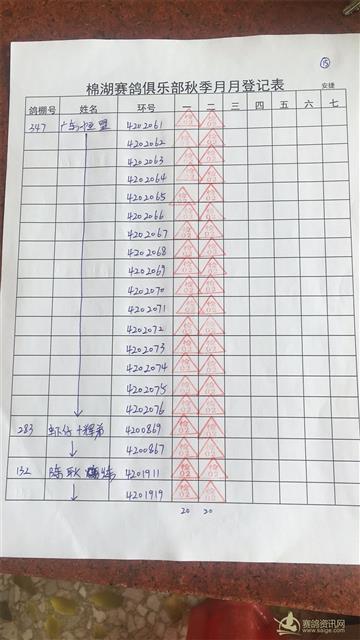 ⑮
棉湖赛鸽俱乐部秋季月月登记表
安捷
鸽棚号 姓名 环号 一 二 三 四 五 六 七
347 4202061
4202062
4202063
4202064
4202065
4202066
4202067
4202068
4202069
4202070
4202071
4202072
4202073
4202074
4202075
4202076
283 虾仔+辉弟 4200869
4200867
132 4201911
4201919
20 20
赛鸽资讯网
www.saige.com